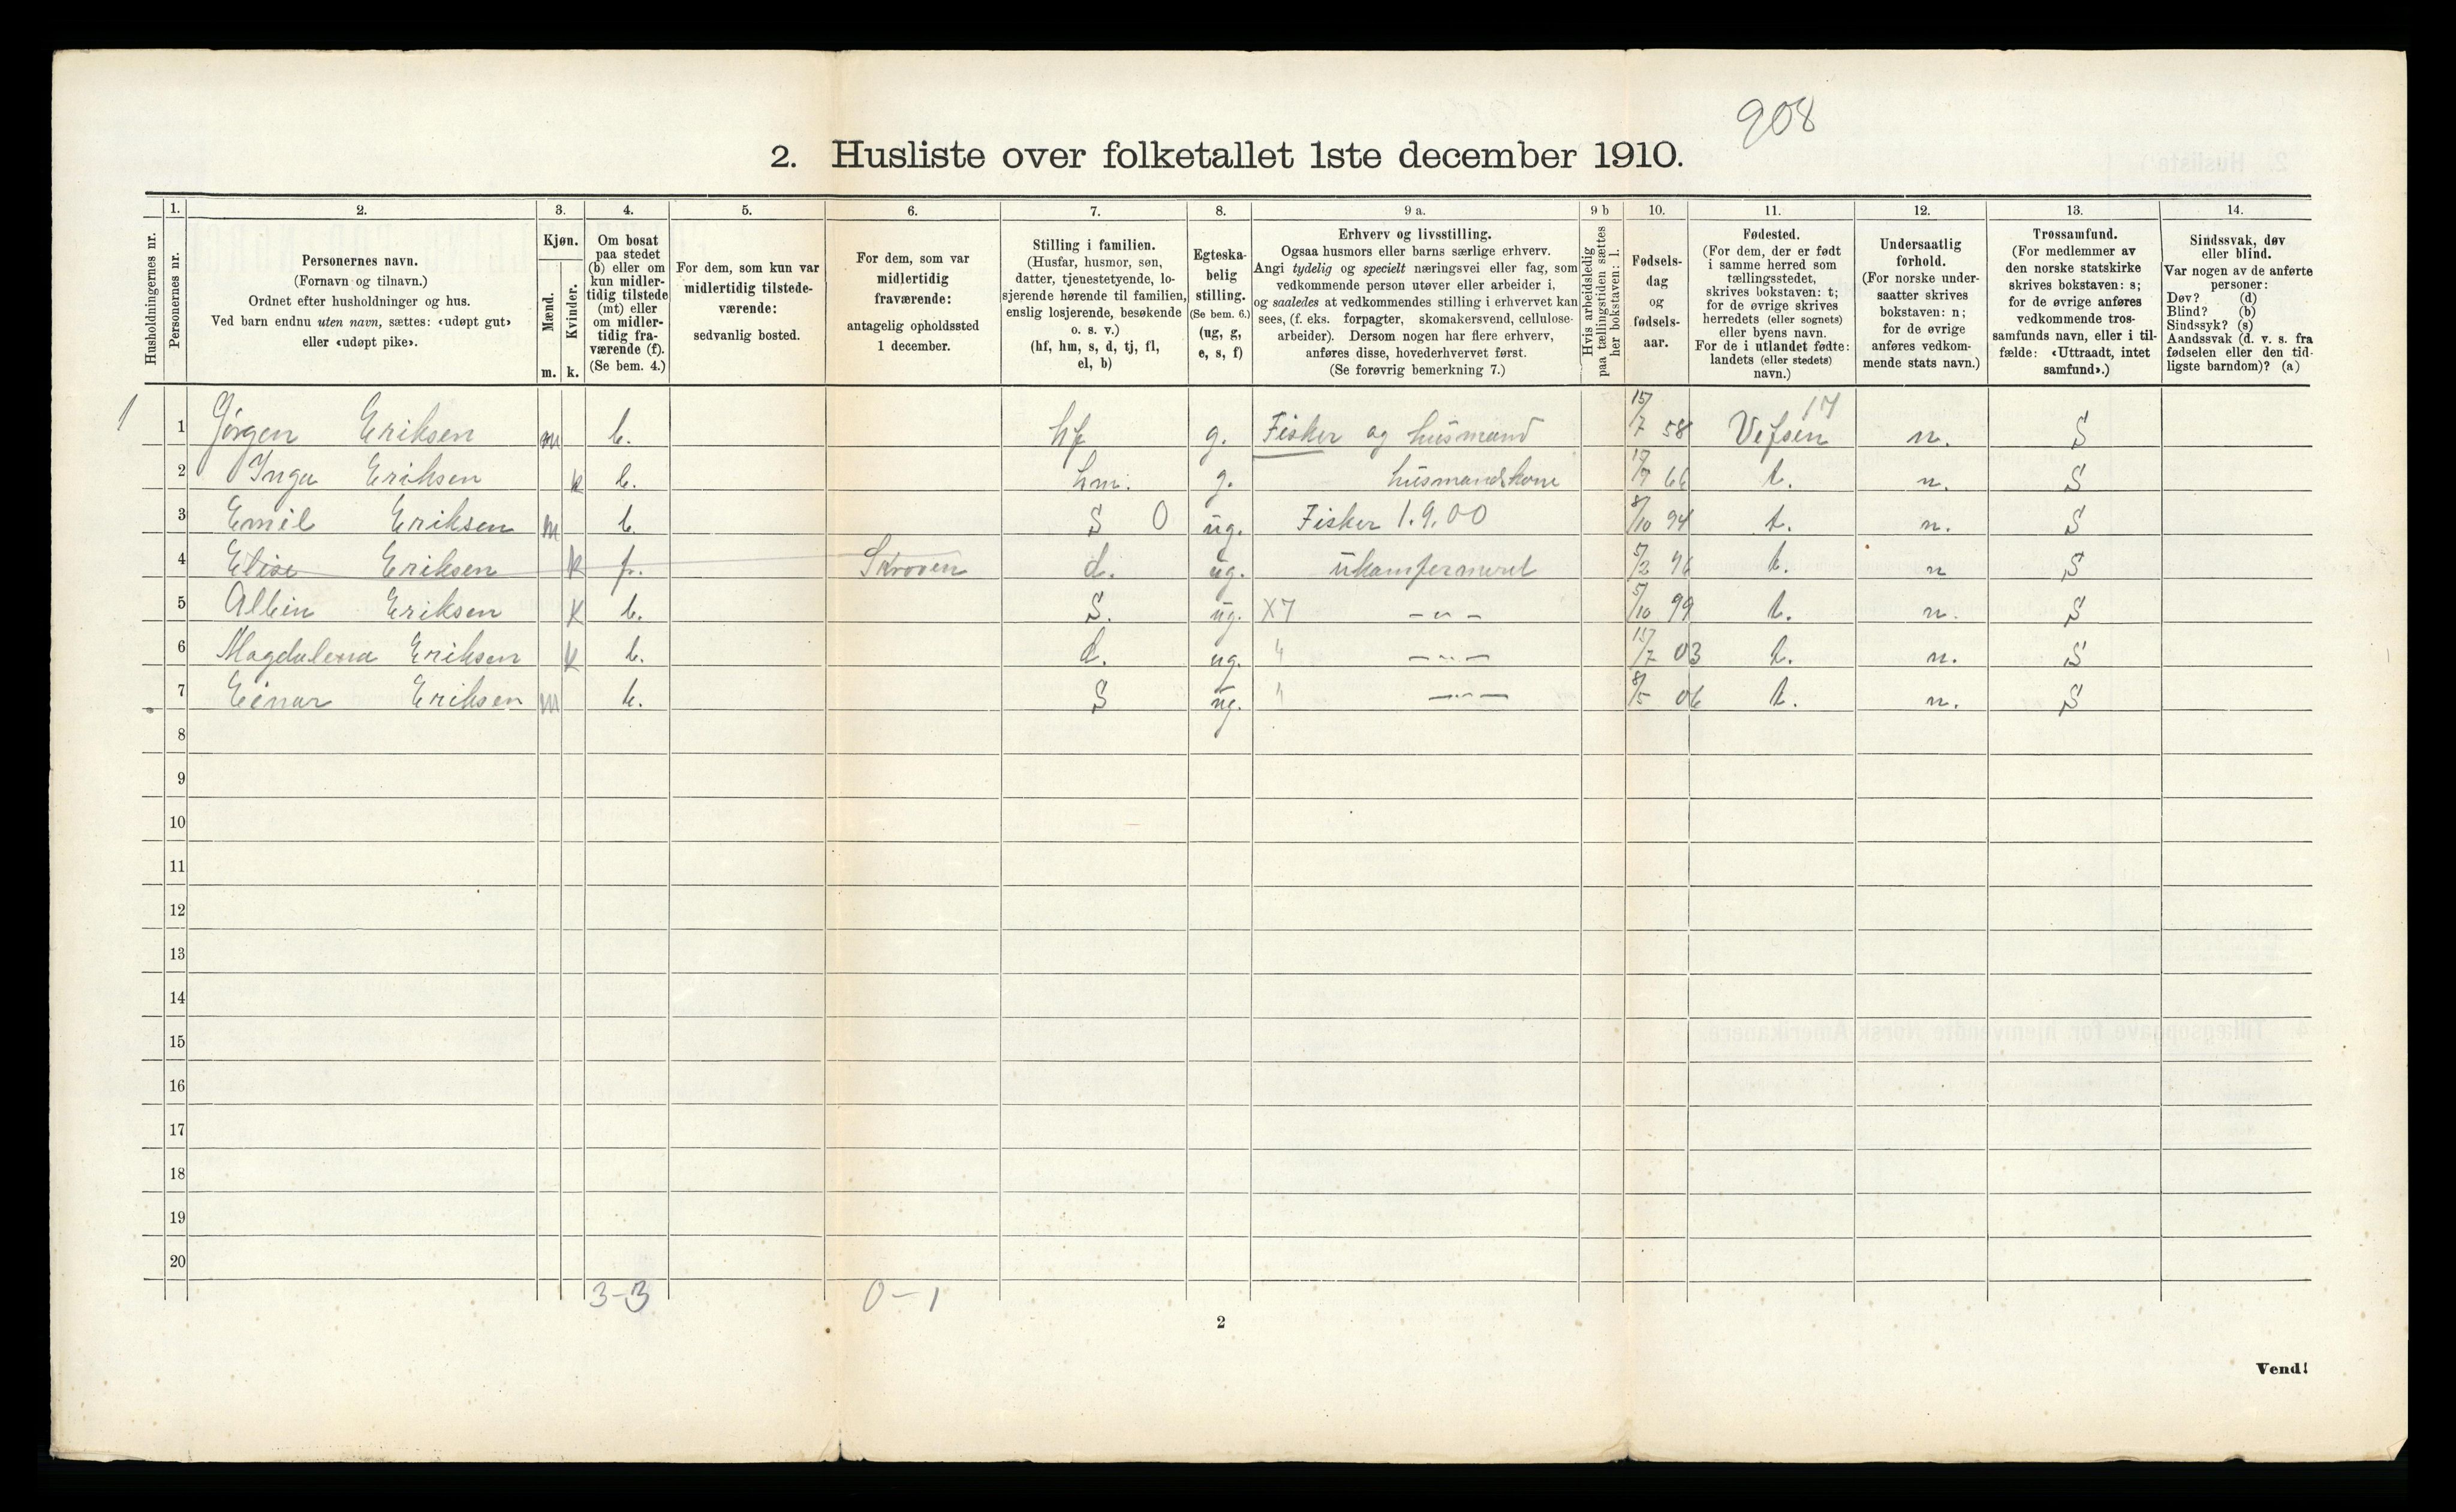 908
2. Husliste over folketallet 1ste december 1910.
Husholdningernes nr.
1.
Personernes nr.
2.
Personernes navn.
(Fornavn og tilnavn.)
Ordnet efter husholdninger og hus.
Ved barn endnu uten navn, sættes: «udøpt gut»
eller «udøpt pike».
3.
Kjøn.
Mænd.
Kvinder.
m. k.
4.
Om bosat
paa stedet
(b) eller om
kun midler-
tidig tilstede
(mt) eller
om midler-
tidig fra-
værende (f).
(Se bem. 4.)
5.
For dem, som kun var
midlertidig tilstede-
værende:
sedvanlig bosted.
6.
For dem, som var
midlertidig
fraværende:
antagelig opholdssted
1 december.
7.
Stilling i familien.
(Husfar, husmor, søn,
datter, tjenestetyende, lo-
sjerende hørende til familien,
enslig losjerende, besøkende
o. s. v.)
(hf, hm, s, d, tj, fl,
el, b)
8.
Egteska-
belig
stilling.
(Se bem. 6.)
(ug, g,
e, s, f)
9 a.
Erhverv og livsstilling.
Ogsaa husmors eller barns særlige erhverv.
Angi tydelig og specielt næringsvei eller fag, som
vedkommende person utøver eller arbeider i,
og saaledes at vedkommendes stilling i erhvervet kan
sees, (f. eks. forpagter, skomakersvend, cellulose-
arbeider). Dersom nogen har flere erhverv,
anføres disse, hovederhvervet først.
(Se forøvrig bemerkning 7.)
9 b
Hvis arbeidsledig
paa tællingstiden sættes
her bokstaven: l.
10.
Fødsels-
dag
og
fødsels-
aar.
11.
Fødested.
(For dem, der er født
i samme herred som
tællingsstedet,
skrives bokstaven: t;
for de øvrige skrives
herredets (eller sognets)
eller byens navn.
For de i utlandet fødte:
landets (eller stedets)
navn.)
12.
Undersaatlig
forhold.
(For norske under-
saatter skrives
bokstaven: n;
for de øvrige
anføres vedkom-
mende stats navn.)
13.
Trossamfund.
(For medlemmer av
den norske statskirke
skrives bokstaven: s;
for de øvrige anføres
vedkommende tros-
samfunds navn, eller i til-
fælde: «Uttraadt, intet
samfund».)
14.
Sindssvak, døv
eller blind.
Var nogen av de anførte
personer:
Døv? (d)
Blind? (b)
Sindssyk? (s)
Aandssvak (d. v. s. fra
fødselen eller den tid-
ligste barndom)? (a)
1 1 Jørgen Eriksen m b. hf g. Fisker og husmand 15/7 58 Vefsen 17 n. S
2 Inga Eriksen k b. hm. g. husmandskone 19/7 66 t. n. S
3 Emil Eriksen m b. S 0 ug. Fisker 1.9.00 8/10 94 t. n. S
4 Elise Eriksen k f. Skroven d. ug. ukonfermeret 5/2 96 t. n S
5 Albin Eriksen K b. S. ug. X7 - " - 5/10 99 t. n. S
6 Magdalena Eriksen k b. d. ug. " - " - 15/7 03 t. n. S
7 Einar Eriksen m b. S ug. " - " - 8/5 06 t. n. S
8
9
10
11
12
13
14
15
16
17
18
19
20
3-3 0-1
2
Vend!